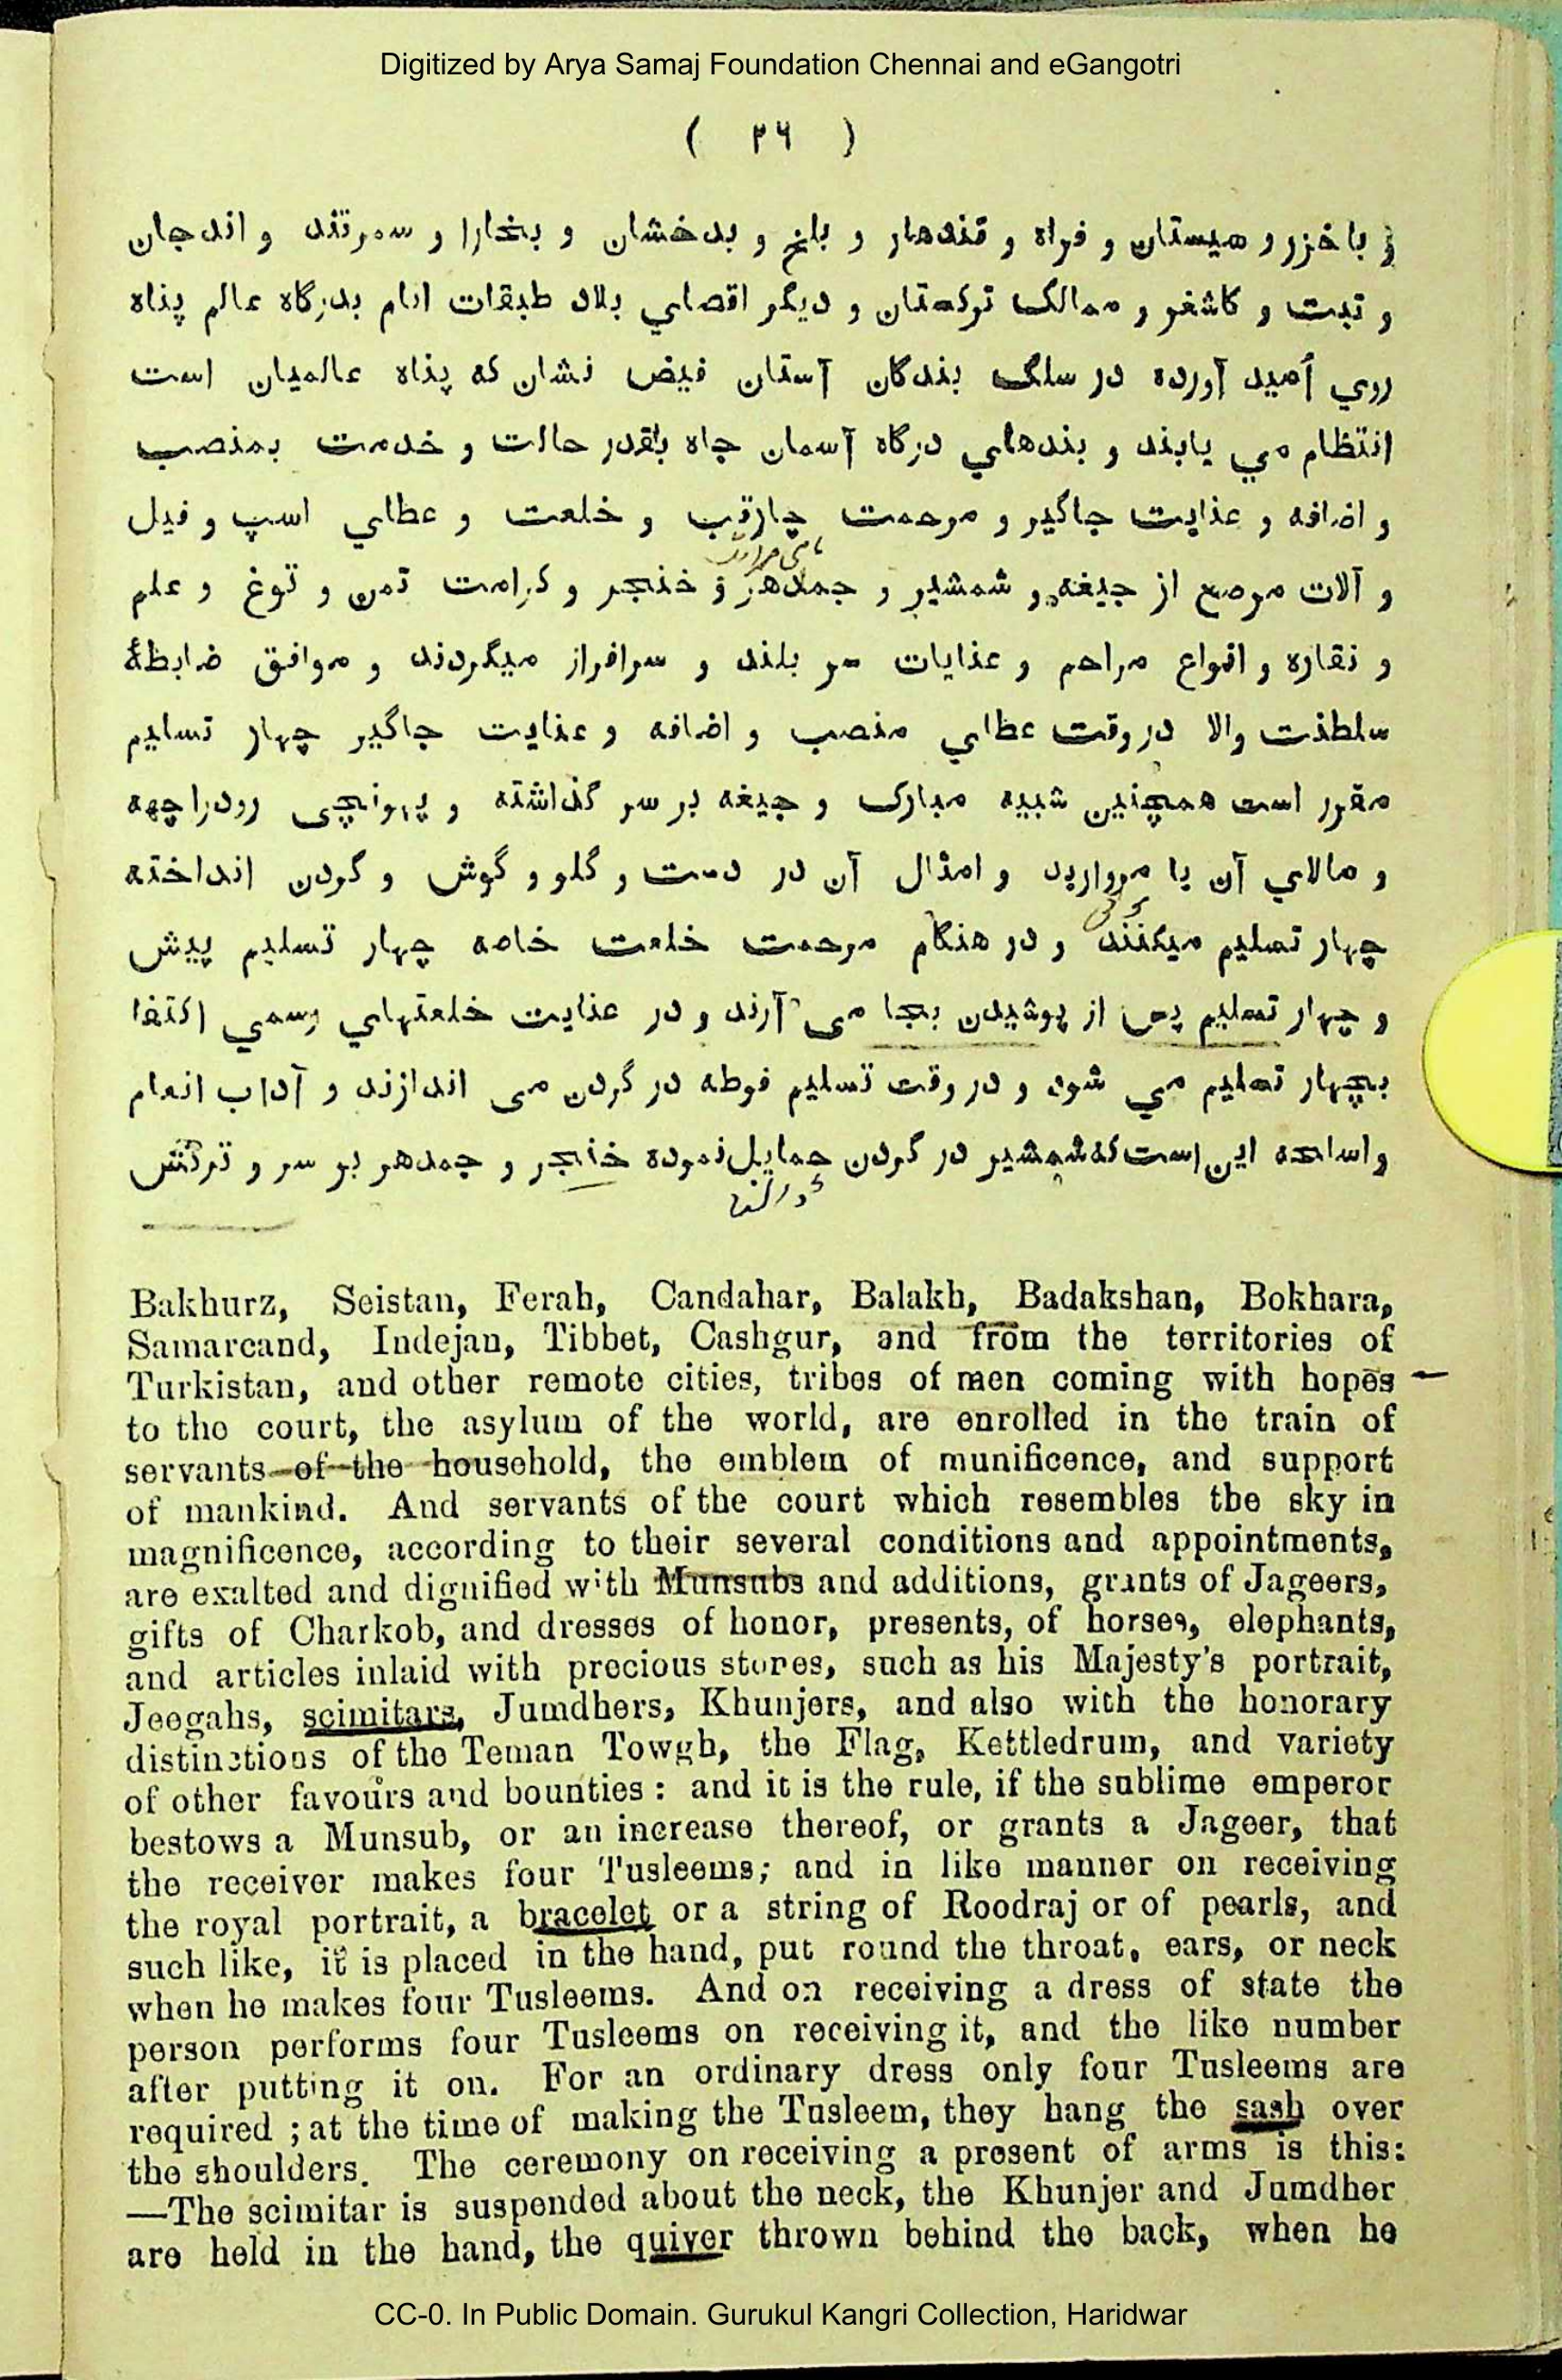 Digitized by Arya Samaj Foundation Chennai and eGangotri
( ٣٦ )
و باخزر و سیستان و فراه و قندهار و بلخ و بدخشان و بخارا و سمرقند و اندجان
و تبت و کاشغر و ممالک ترکستان و دیگر اقصاي بلاد طبقات انام بدرگاه عالم پناه
روي اُمید آورده در سلک بندگان آستان فیض نشان که پناه عالمیان است
انتظام مي یابند و بندهاي درگاه آسمان جاه بقدر حالت و خدمت بمنصب
و اضافه و عنایت جاگیر و مرحمت چارقب و خلعت و عطاي اسپ و فیل
و آلات مرصع از جیغه و شمشیر و جمدهر و خنجر و کرامت تمن و توغ و علم
و نقاره و انواع مراحم و عنایات سر بلند و سرافراز میگردند و موافق ضابطهٔ
سلطنت والا در وقت عطاي منصب و اضافه و عنایت جاگیر چهار تسلیم
مقرر است همچنین شبیه مبارک و جیغه بر سر گذاشته و پهونچی رودراچهه
و مالاي آن یا مروارید و امثال آن در دست و گلو و گوش و گردن انداخته
چهار تسلیم میکنند و در هنگام مرحمت خلعت خاصه چهار تسلیم پیش
و چهار تسلیم پس از پوشیدن بجا می آرند و در عنایت خلعتهاي رسمي اکتفا
بچهار تسلیم مي شود و در وقت تسلیم فوطه در گردن می اندازند و آداب انعام
و اسلحه این است که شمشیر در گردن حمایل نموده خنجر و جمدهر بر سر و ترکش
Bakhurz, Seistan, Ferah, Candahar, Balakh, Badakshan, Bokhara,
Samarcand, Indejan, Tibbet, Cashgur, and from the territories of
Turkistan, and other remote cities, tribes of men coming with hopes
to the court, the asylum of the world, are enrolled in the train of
servants of the household, the emblem of munificence, and support
of mankind. And servants of the court which resembles the sky in
magnificence, according to their several conditions and appointments,
are exalted and dignified with Munsubs and additions, grants of Jageers,
gifts of Charkob, and dresses of honor, presents, of horses, elephants,
and articles inlaid with precious stones, such as his Majesty's portrait,
Jeegahs, scimitars, Jumdhers, Khunjers, and also with the honorary
distinctions of the Teman Towgh, the Flag, Kettledrum, and variety
of other favours and bounties : and it is the rule, if the sublime emperor
bestows a Munsub, or an increase thereof, or grants a Jageer, that
the receiver makes four Tusleems; and in like manner on receiving
the royal portrait, a bracelet or a string of Roodraj or of pearls, and
such like, it is placed in the hand, put round the throat, ears, or neck
when he makes four Tusleems. And on receiving a dress of state the
person performs four Tusleems on receiving it, and the like number
after putting it on. For an ordinary dress only four Tusleems are
required ; at the time of making the Tusleem, they hang the sash over
the shoulders. The ceremony on receiving a present of arms is this:
—The scimitar is suspended about the neck, the Khunjer and Jumdher
are held in the hand, the quiver thrown behind the back, when he
CC-0. In Public Domain. Gurukul Kangri Collection, Haridwar